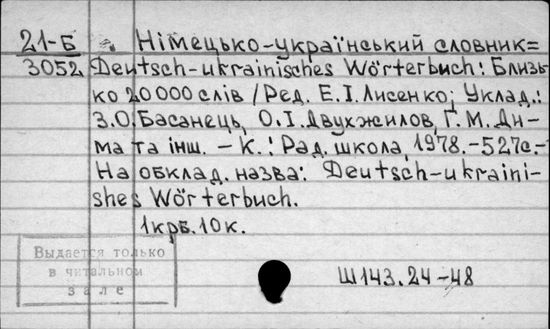 21-Б
3052
Німецько-український словник=
Deutsch-ukrainisches Wörterbuch: Близь-
ко 20000 слів / Ред. Е.І.Лисенко; Уклад.:
З.О.Басанець, О.І.Двухжилов, Г.М.Ди-
ма та інш. – К.: Рад. школа, 1978.-527с.-
На обклад. назва: Deutsch-ukraini-
shes Wörterbuch.
1крб.10к.
Выдается только
в читальном
зале
Ш143.24-48